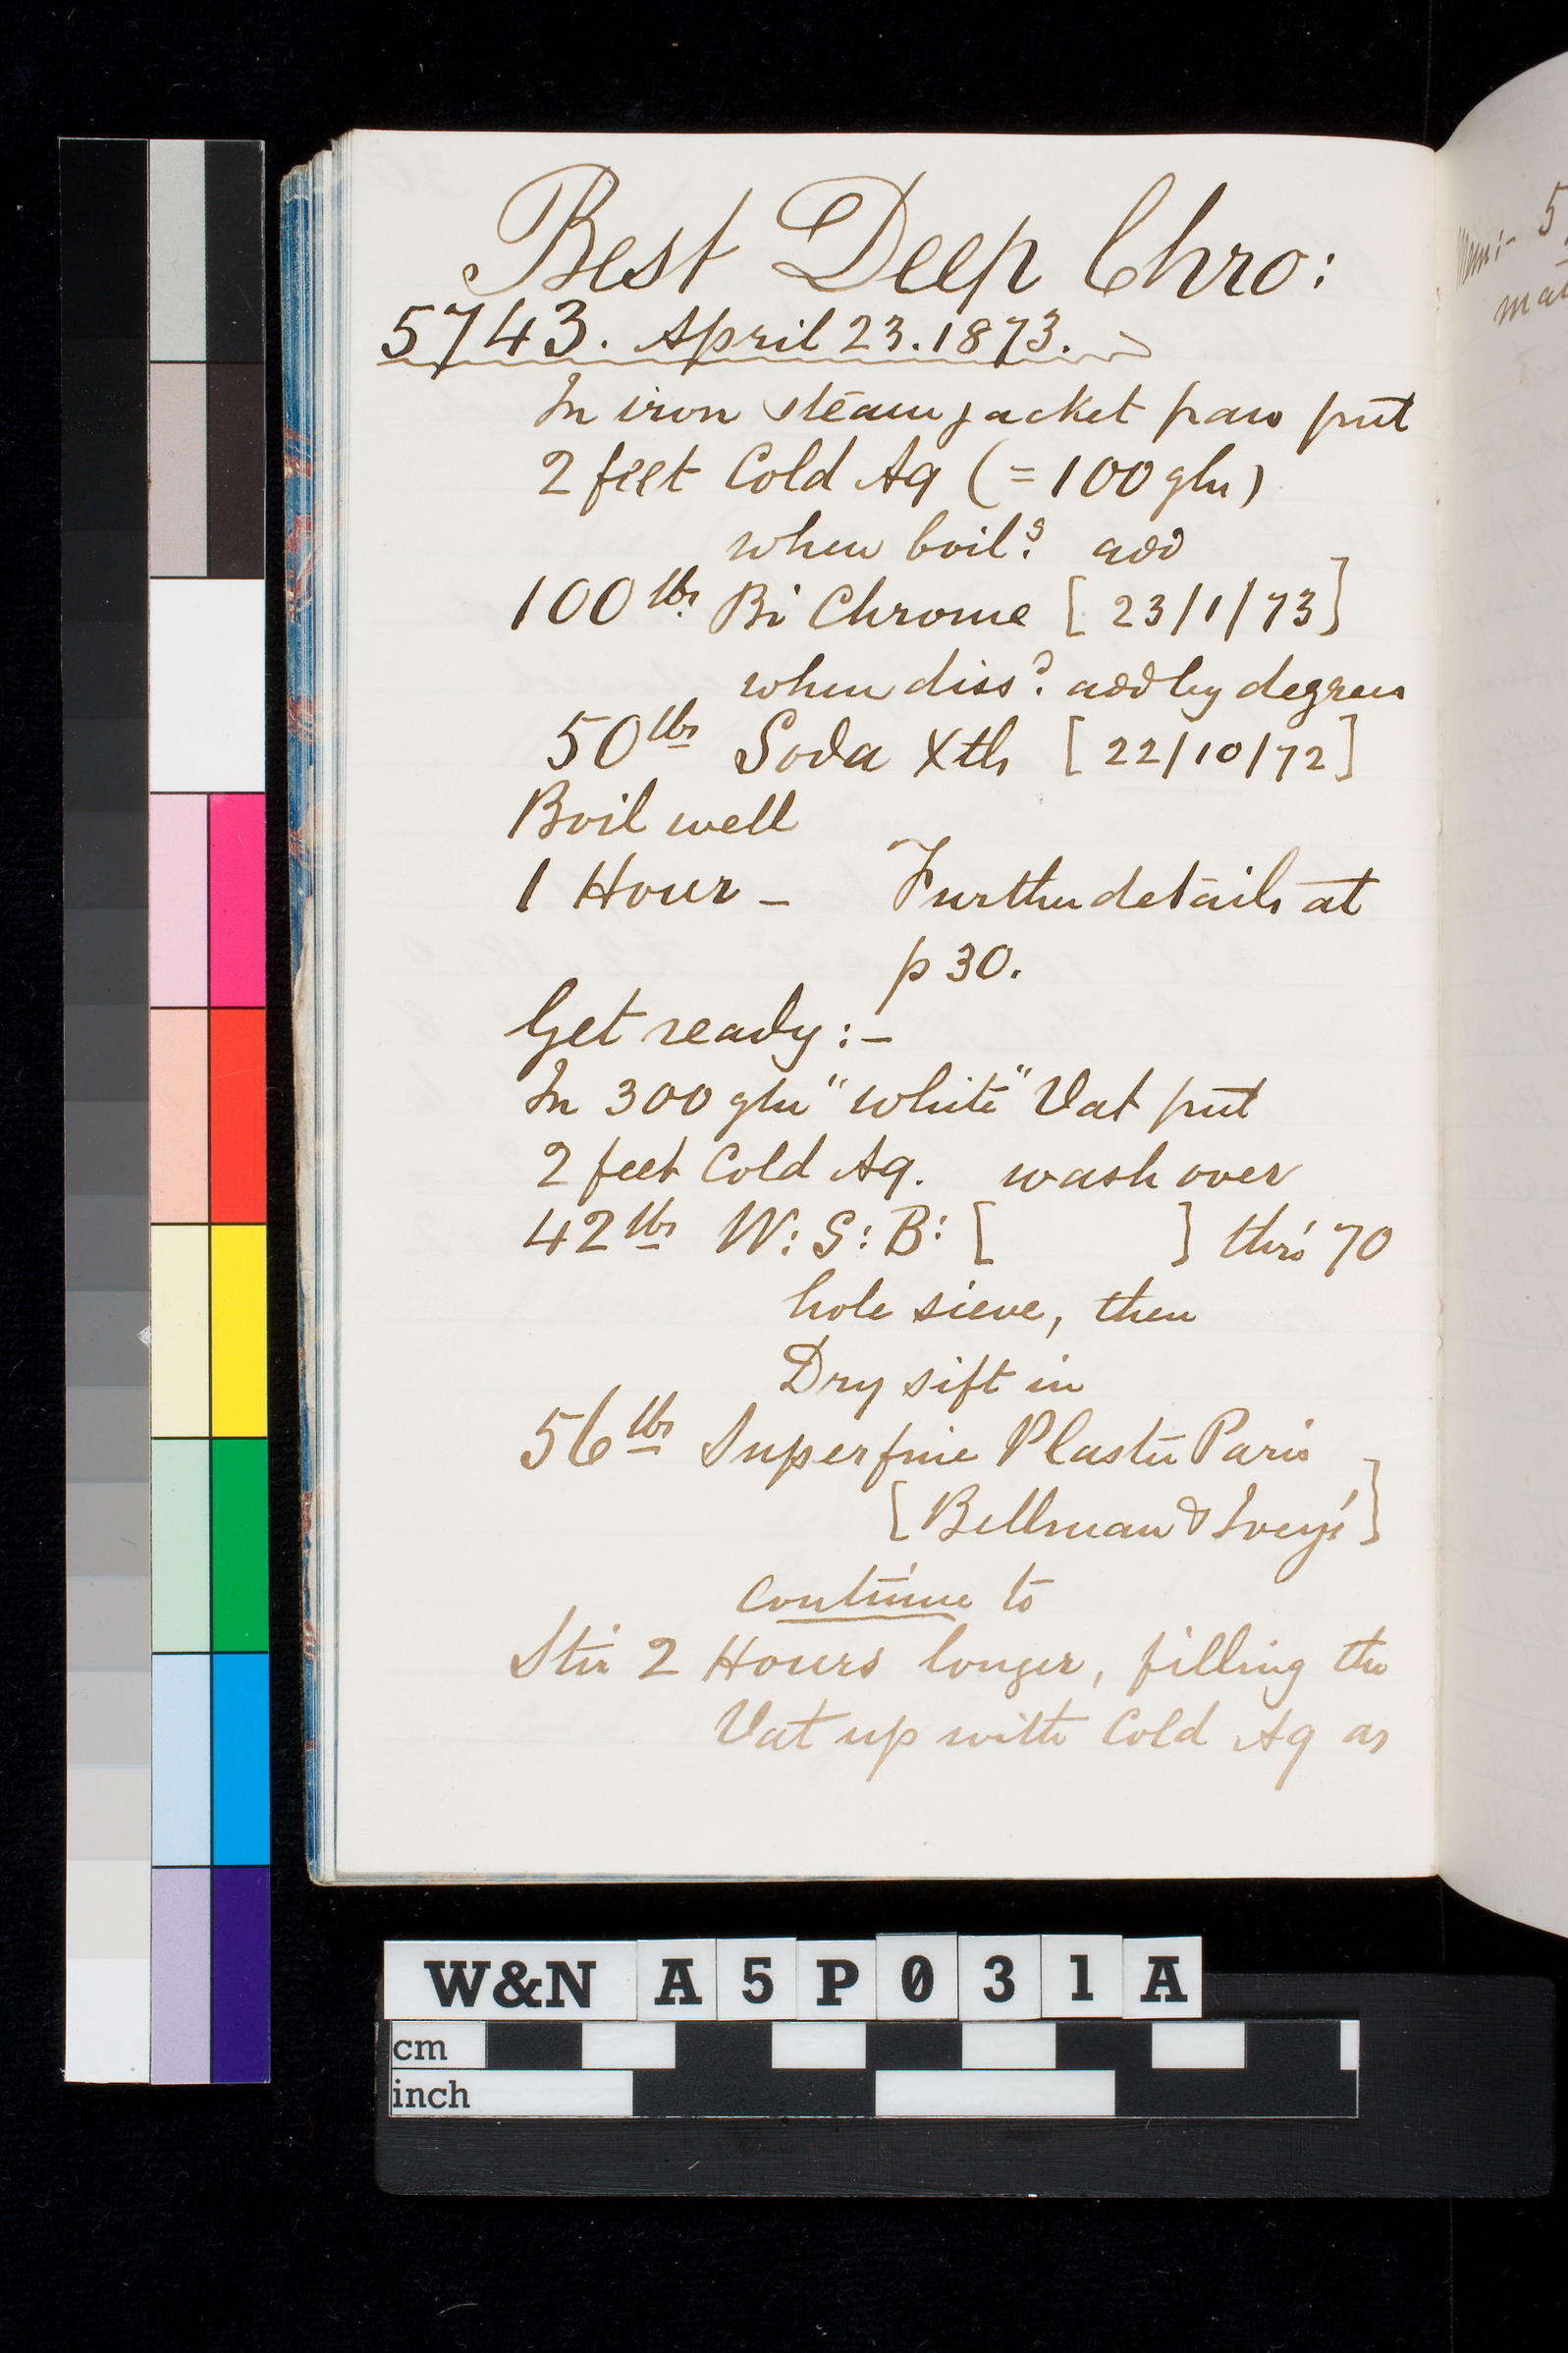 Best Deep Chro:
5743. April 23. 1873.
In iron steam jacket pan put
2 feet Cold Aq (= 100 glns)
when boil.g add
100 lbs Bi Chrome [ 23/1/73 ]
when diss.d add by degrees
50 lbs Soda Xtls [ 22/10/72 ]
Boil well
1 Hour – Further details at
p 30.
Get ready :–
In 300 gln "white" Vat put
2 feet Cold Aq. wash over
42 lbs W: S: B: [ ] thro' 70
hole sieve, then
Dry sift in
56 lbs Superfine Plaster Paris
[ Bellman & Ivey's ]
continue to
Stir 2 Hours longer, filling the
Vat up with Cold Aq as
Mem:- 5
W&N A5P031A
cm
inch